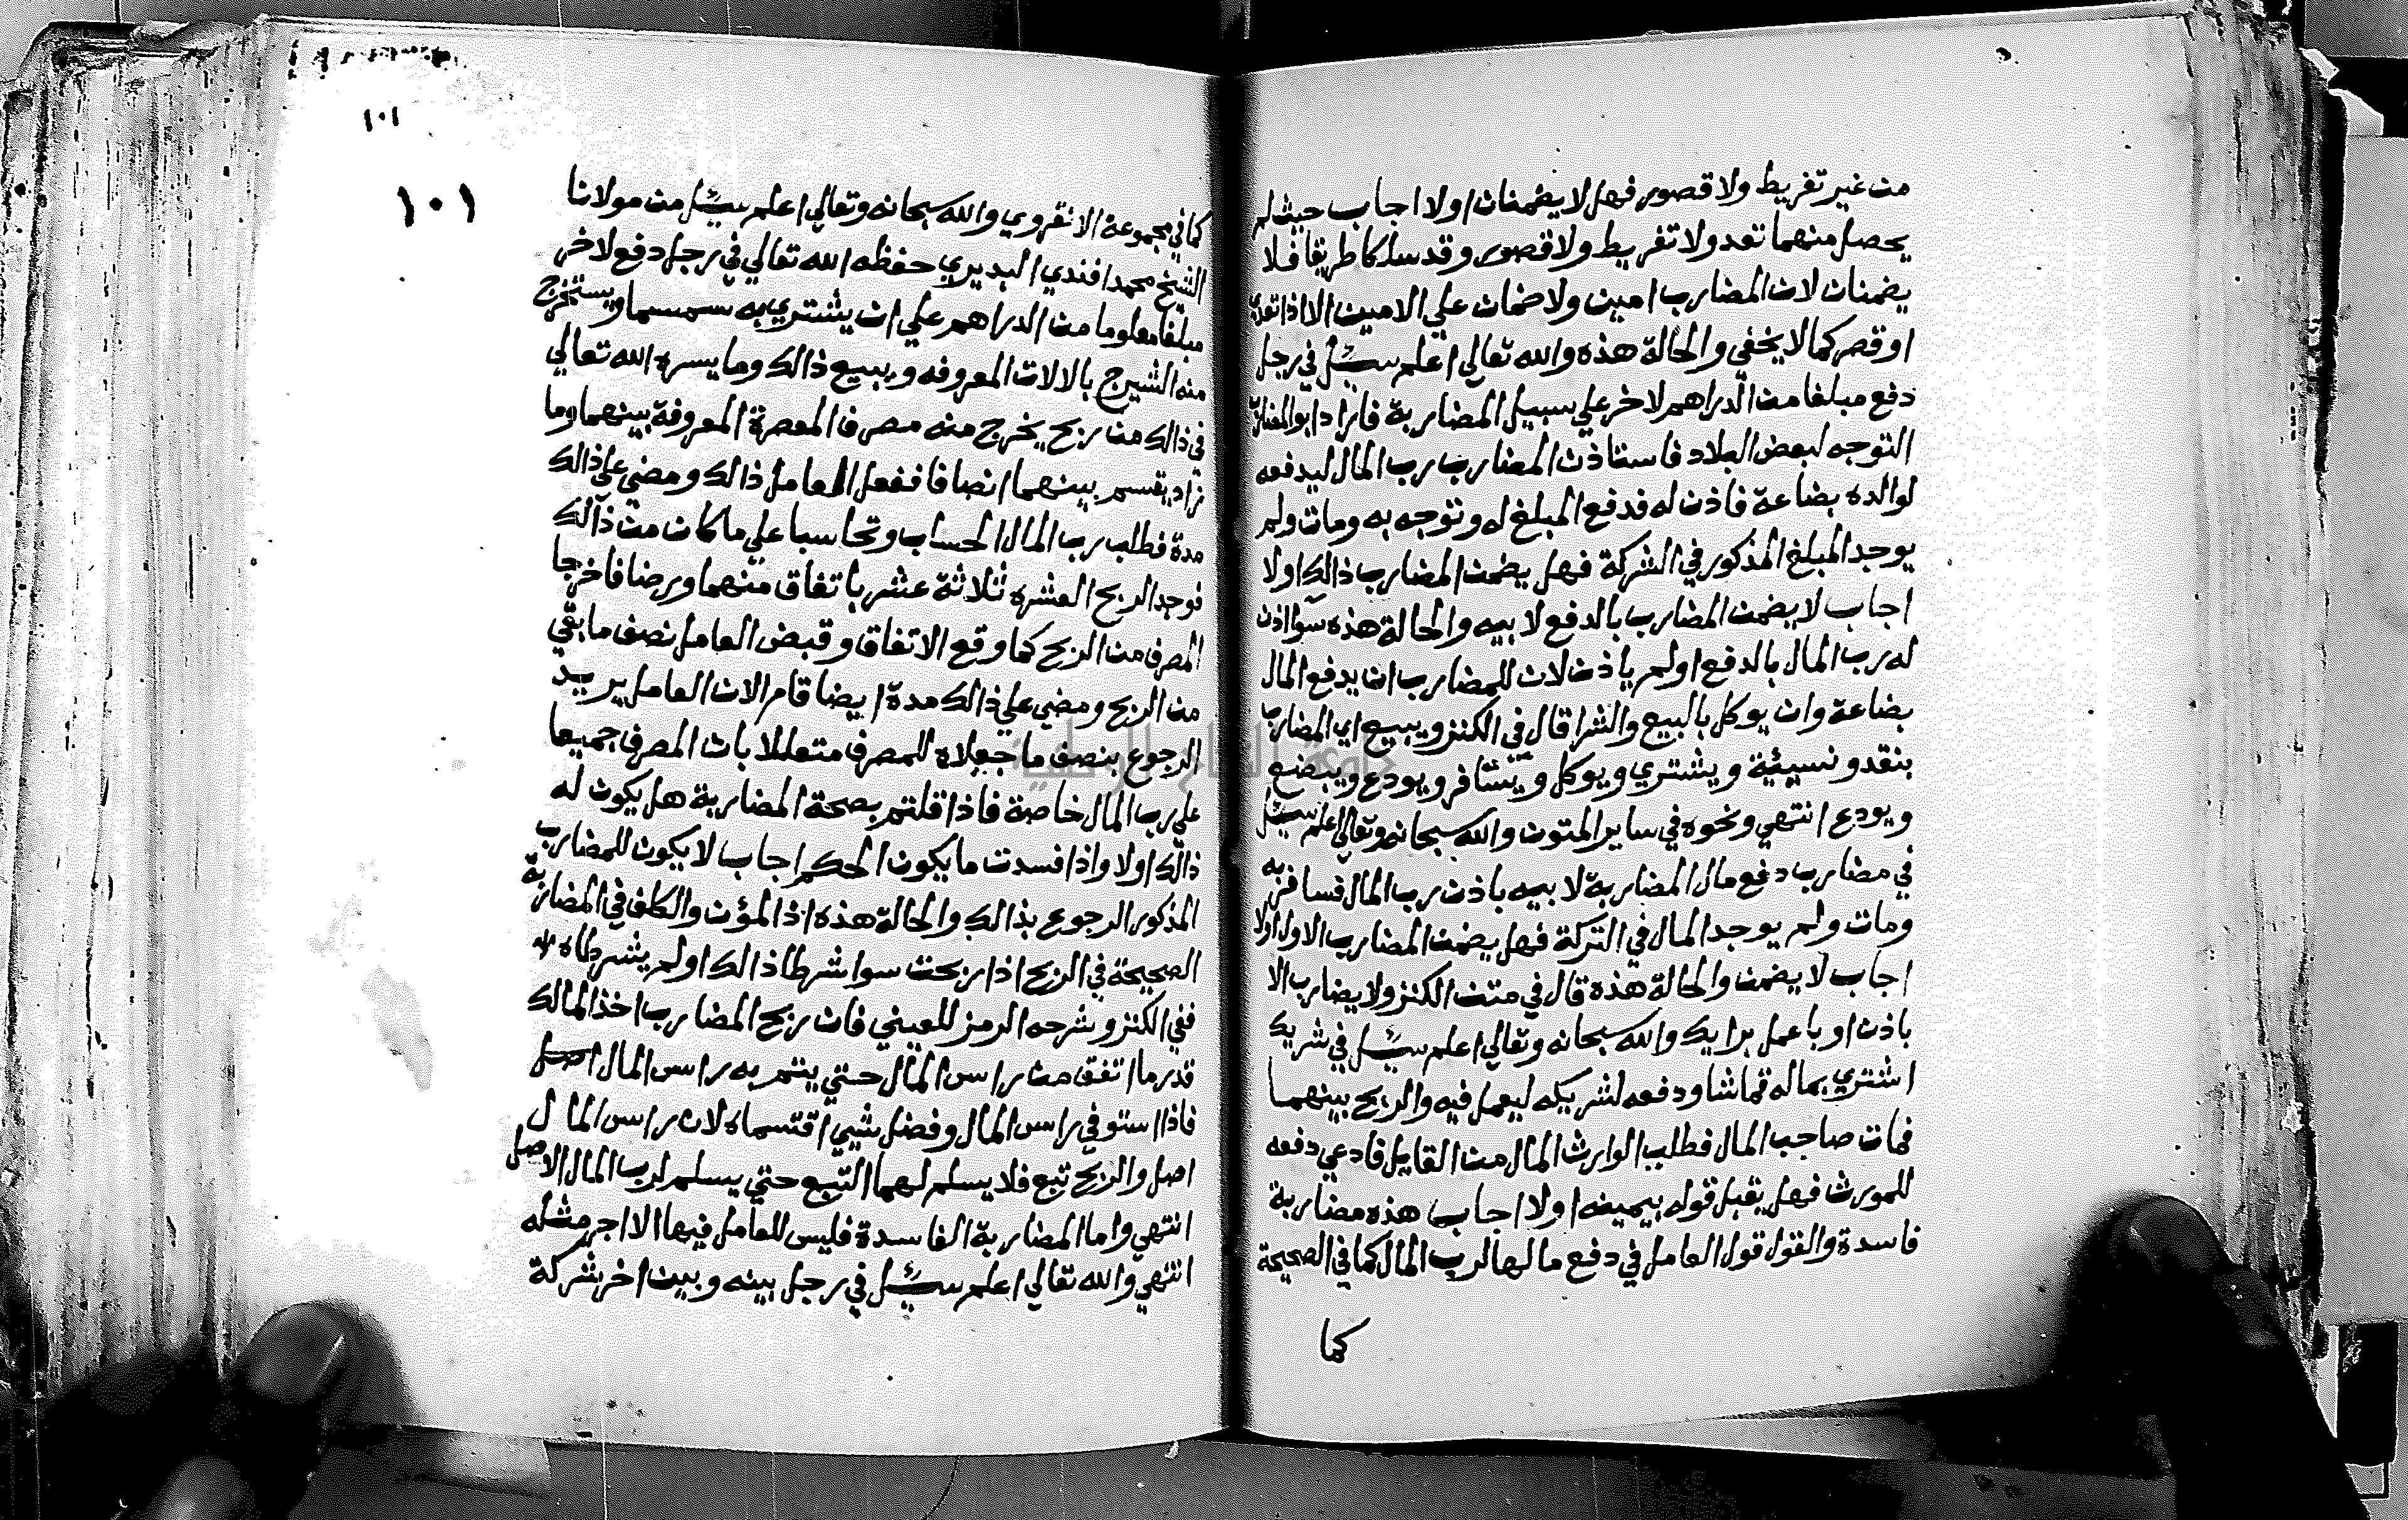 من غير تفريط ولا قصور فهل لا يضمنان اولا اجاب حيث لم
يحصل منهما تعد ولا تفريط ولا قصور وقد سلكا طريقا فلا
يضمنان لان المضارب امين ولا ضمان علي الامين الا اذا تعدي
او قصر كما لا يخفي والحالة هذه والله تعالي اعلم سئل في رجل
دفع مبلغا من الدراهم لاخر علي سبيل المضاربة فاراد ابو المضارب
التوجه لبعض البلاد فاستاذن المضارب رب المال ليدفعه
لوالده بضاعة فاذن له فدفع المبلغ له وتوجه به ومات ولم
يوجد المبلغ المذكور في الشركة فهل يضمن المضارب ذالك اولا
اجاب لا يضمن المضارب بالدفع لابيه والحالة هذه سوا اذن
له رب المال بالدفع اولم ياذن لان للمضارب ان يدفع المال
بضاعة وان يوكل بالبيع والشرا قال في الكنز ويبيع اي المضارب
بنقد ونسيئة ويشتري ويوكل ويسافر ويودع ويبضع
ويودع انتهي ونحوه في ساير المتون والله سبحانه وتعالي اعلم سئل
في مضارب دفع مال المضاربة لابيه باذن رب المال فسافر به
ومات ولم يوجد المال في التركة فهل يضمن المضارب الاول اولا
اجاب لا يضمن والحالة هذه قال في متن الكنز ولا يضارب الا
باذن او باعمل برايك والله سبحانه وتعالي اعلم سئل في شريك
اشتري بماله قماشا ودفعه لشريكه ليعمل فيه والربح بينهما
فمات صاحب المال فطلب الوارث المال من القابل فادعي دفعه
للمورث فهل يقبل قوله بيمينه اولا اجاب هذه مضاربة
فاسدة والقول قول العامل في دفع مالها لرب المال كما في الصحيحة
كما
١٠١
١٠١
كما في مجموعة الانقروي والله سبحانه وتعالي اعلم سئل من مولانا
الشيخ محمد افندي البديري حفظه الله تعالي في رجل دفع لاخر
مبلغا معلوما من الدراهم علي ان يشتري به سمسما ويستخرج
منه الشيرج بالالات المعروفه ويبيع ذالك وما يسره الله تعالي
في ذالك من ربح يخرج منه مصرف المعصرة المعروفة بينهما وما
زاد يقسم بينهما انصافا ففعل العامل ذالك ومضي علي ذالك
مدة فطلب رب المال الحساب وتحاسبا علي ما كان من ذالك
فوجد الربح العشره ثلاثة عشر باتفاق منهما ورضا فاخرجا
المصرف من الربح كما وقع الاتفاق وقبض العامل نصف ما بقي
من الربح ومضي علي ذالك مدة ايضا قام الان العامل يريد
الرجوع بنصف ما جعلاه للمصرف متعللا بان المصرف جميعا
علي رب المال خاصة فاذا قلتم بصحة المضاربة هل يكون له
ذالك اولا واذا فسدت ما يكون الحكم اجاب لا يكون للمضارب
المذكور الرجوع بذالك والحالة هذه اذ المؤن والكلف في المضاربة
الصحيحة في الربح اذا ربحت سوا شرطا ذالك اولم يشرطاه
ففي الكنز وشرحه الرمز للعيني فان ربح المضارب اخذ المالك
قدر ما اتفق من راس المال حتي يتم به راس المال اصل
فاذا استوفي راس المال وفضل شيي اقتسماه لان راس المال
اصل والربح تبع فلا يسلم لهما التبع حتي يسلم لرب المال الاصل
انتهي واما المضاربة الفاسدة فليس للعامل فيها الا اجر مثله
انتهي والله تعالي اعلم سئل في رجل بينه وبين اخر شركة